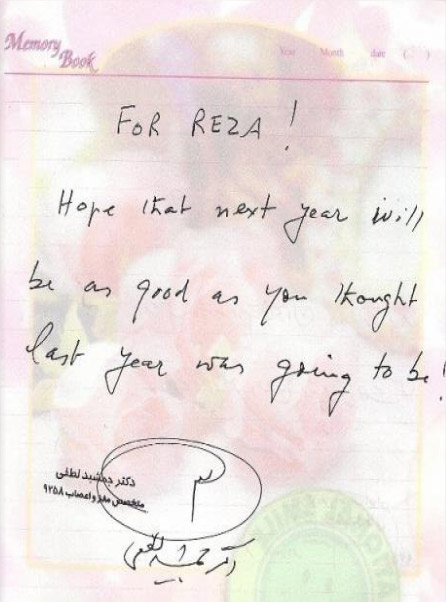 Memory
Book
Year Month date ( )
FOR REZA!
Hope that next year will
be as good as you thought
last year was going to be!
دکتر جمشید لطفی
متخصص مغز و اعصاب ۹۲۵۸
دکتر جمشید لطفی